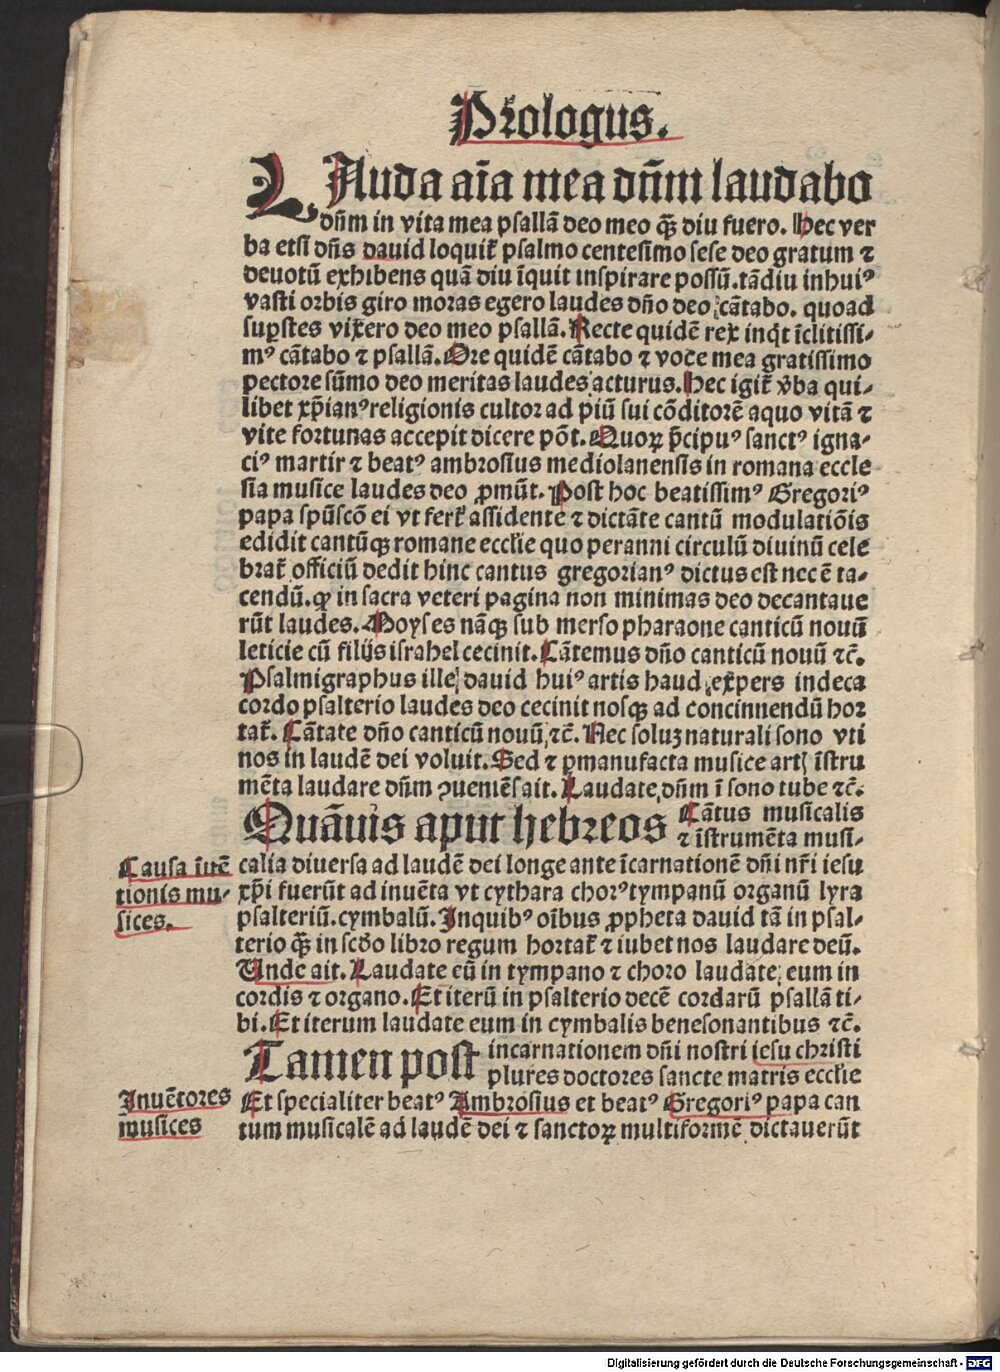 Prologus.
LAuda aīa mea dn̄m laudabo
dn̄m in vita mea psallā deo meo qͣ̄ diu fuero. Hec ver
ba etsi dn̄s dauid loquit̄ psalmo centesimo sese deo gratum ⁊
deuotū exhibens quā diu īquit inspirare possū. tādiu in huiꝰ
vasti orbis giro moras egero laudes dn̄o deo cātabo. quoad
suꝑstes vixero deo meo psallā. Recte quidē rex inqͥt īclitissi-
mꝰ cātabo ⁊ psallā. Ore quidē cātabo ⁊ voce mea gratissimo
pectore sūmo deo meritas laudes acturus. Hec igit̄ v̄ba qui-
libet xp̄ianꝰ religionis cultor ad piū sui cōditorē a quo vitā ⁊
vite fortunas accepit dicere pōt. Quoꝝ p̄cipuꝰ sanctꝰ igna-
ciꝰ martir ⁊ beatꝰ ambrosius mediolanensis in romana eccle
sia musice laudes deo ꝓmūt. Post hoc beatissimꝰ Gregoriꝰ
papa spūscō ei vt fert̄ assidente ⁊ dictāte cantū modulatiōis
edidit cantūqꝫ romane eccl̄ie quo peranni circulū diuinū cele
brat̄ officiū dedit hinc cantus gregorianꝰ dictus est nec ē ta-
cendū. ꝙ in sacra veteri pagina non minimas deo decantaue
rūt laudes. Moyses nāqꝫ sub merso pharaone canticū nouū
leticie cū filijs israhel cecinit. Cātemus dn̄o canticū nouū ⁊c̄.
Psalmigraphus ille dauid huiꝰ artis haud expers in deca
cordo psalterio laudes deo cecinit nosqꝫ ad concinnendū hor
tat̄. Cātate dn̄o canticū nouū ⁊c̄. Nec soluꝫ naturali sono vti
nos in laudē dei voluit. Sed ⁊ ꝑ manufacta musice art̄ īstru
mēta laudare dn̄m ꝯueniēs ait. Laudate dn̄m ī sono tube ⁊c̄.
Quāuis aput hebreos Cātus musicalis
⁊ īstrumēta musi-
Causa īuē
tionis mu-
sices.
calia diuersa ad laudē dei longe ante īcarnationē dn̄i nr̄i iesu
xp̄i fuerūt ad inuēta vt cythara chorꝰ tympanū organū lyra
psalteriū. cymbalū. In quibꝰ oībus ꝓpheta dauid tā in psal-
terio qͣ̄ in scd̄o libro regum hortat̄ ⁊ iubet nos laudare deū.
Unde ait. Laudate eū in tympano ⁊ choro laudate eum in
cordis ⁊ organo. Et iterū in psalterio decē cordarū psallā ti-
bi. Et iterum laudate eum in cymbalis benesonantibus ⁊c̄.
Tamen post incarnationem dn̄i nostri iesu christi
plures doctores sancte matris eccl̄ie
Inuētores
musices
Et specialiter beatꝰ Ambrosius et beatꝰ Gregoriꝰ papa can
tum musicalē ad laudē dei ⁊ sanctoꝝ multiformē dictauerūt
Digitalisierung gefördert durch die Deutsche Forschungsgemeinschaft - DFG